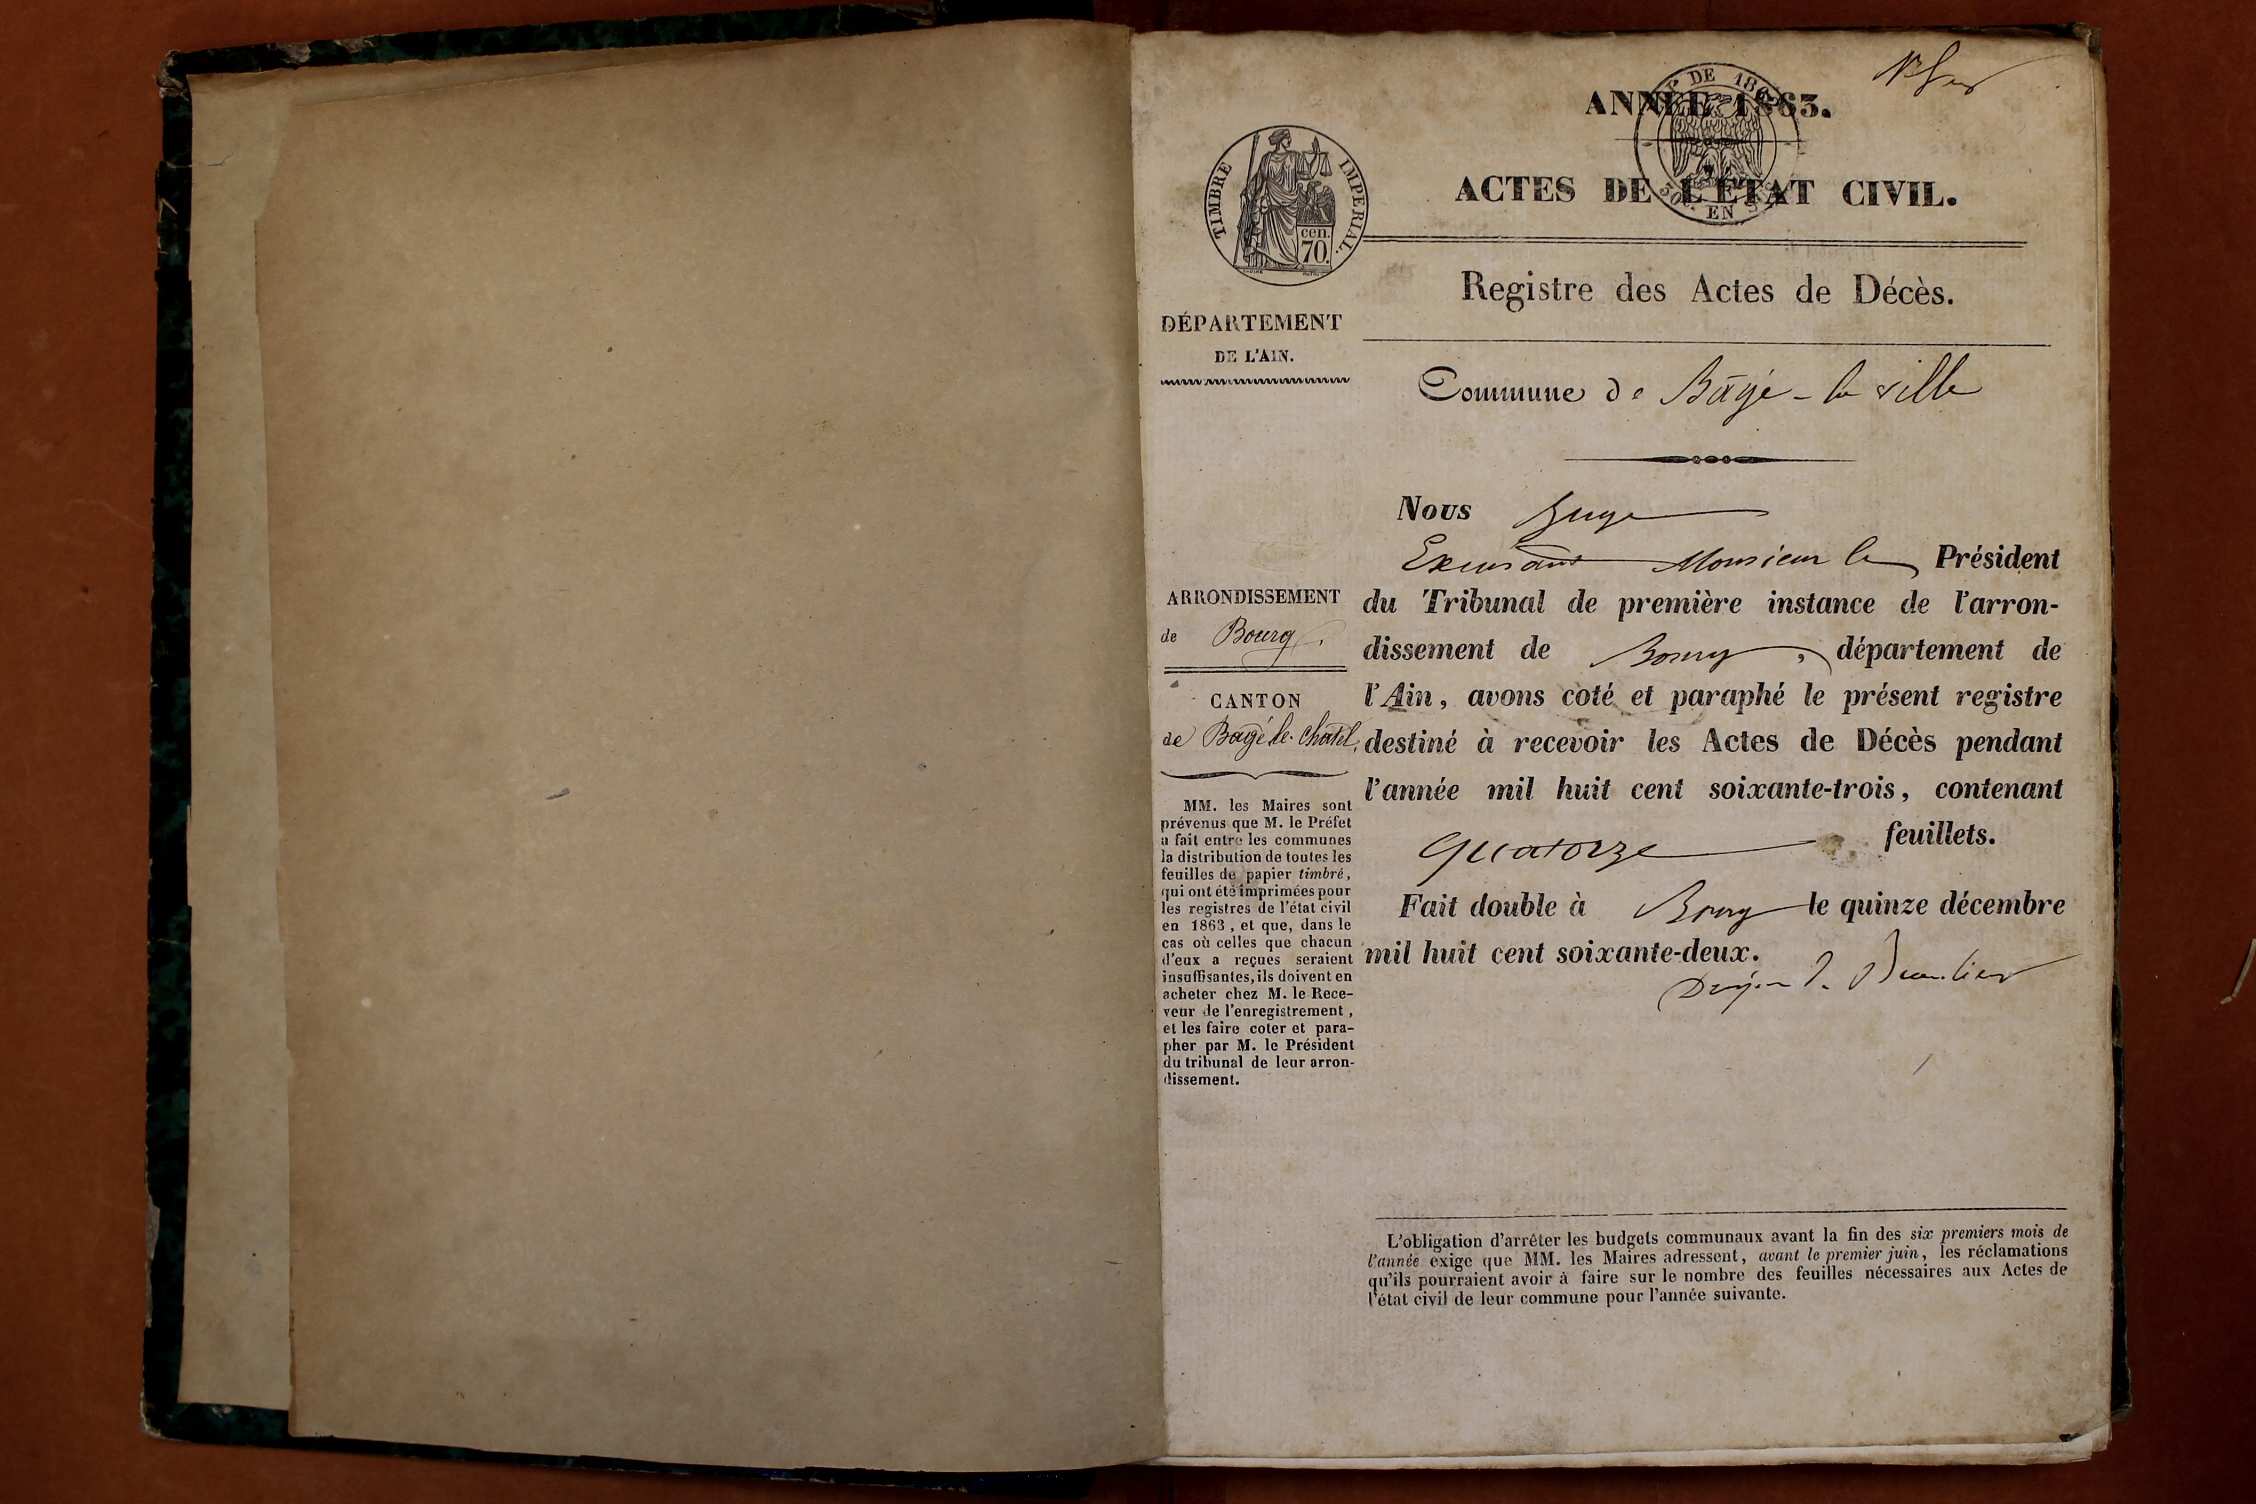 ANNÉE 1863.
DE 186
EN
TIMBRE IMPERIAL.
cen.
70.
ACTES DE L'ÉTAT CIVIL.
Registre des Actes de Décès.
DÉPARTEMENT
DE L'AIN.
Commune de Bâgé-la ville
ARRONDISSEMENT
de Bourg.
CANTON
de Bagé-le-Chatel,
MM. les Maires sont
prévenus que M. le Préfet
a fait entre les communes
la distribution de toutes les
feuilles de papier timbré,
qui ont été imprimées pour
les registres de l'état civil
en 1863, et que, dans le
cas où celles que chacun
d'eux a reçues seraient
insuffisantes, ils doivent en
acheter chez M. le Rece-
veur de l'enregistrement,
et les faire coter et para-
pher par M. le Président
du tribunal de leur arron-
dissement.
Nous Juge
Monsieur le Président
du Tribunal de première instance de l'arron-
dissement de Bourg, département de
l'Ain, avons coté et paraphé le présent registre
destiné à recevoir les Actes de Décès pendant
l'année mil huit cent soixante-trois, contenant
quatorze feuillets.
Fait double à Bourg le quinze décembre
mil huit cent soixante-deux.
L'obligation d'arrêter les budgets communaux avant la fin des six premiers mois de
l'année exige que MM. les Maires adressent, avant le premier juin, les réclamations
qu'ils pourraient avoir à faire sur le nombre des feuilles nécessaires aux Actes de
l'état civil de leur commune pour l'année suivante.